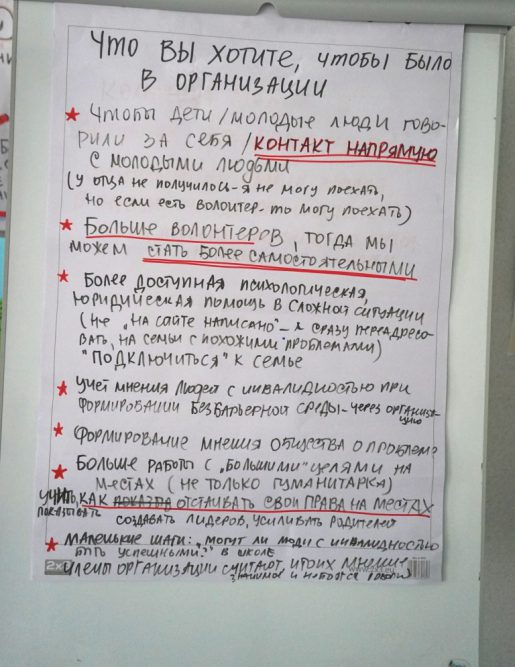 ЧТО ВЫ ХОТИТЕ, ЧТОБЫ БЫЛО
В ОРГАНИЗАЦИИ
★ ЧТОБЫ ДЕТИ/МОЛОДЫЕ ЛЮДИ ГОВО-
РИЛИ ЗА СЕБЯ / КОНТАКТ НАПРЯМУЮ
С МОЛОДЫМИ ЛЮДЬМИ
(У ОТЦА НЕ ПОЛУЧИЛОСЬ - Я НЕ МОГУ ПОЕХАТЬ,
НО ЕСЛИ ЕСТЬ ВОЛОНТЕР - ТО МОГУ ПОЕХАТЬ)
★ БОЛЬШЕ ВОЛОНТЕРОВ, ТОГДА МЫ
МОЖЕМ СТАТЬ БОЛЕЕ САМОСТОЯТЕЛЬНЫМИ
★ БОЛЕЕ ДОСТУПНАЯ ПСИХОЛОГИЧЕСКАЯ,
ЮРИДИЧЕСКАЯ ПОМОЩЬ В СЛОЖНОЙ СИТУАЦИИ
(НЕ „НА САЙТЕ НАПИСАНО" - А СРАЗУ ПЕРЕАДРЕСО-
ВАТЬ, НА СЕМЬИ С ПОХОЖИМИ ПРОБЛЕМАМИ)
"ПОДКЛЮЧИТЬСЯ" К СЕМЬЕ
★ УЧЕТ МНЕНИЯ ЛЮДЕЙ С ИНВАЛИДНОСТЬЮ ПРИ
ФОРМИРОВАНИИ БЕЗБАРЬЕРНОЙ СРЕДЫ - ЧЕРЕЗ ОРГАНИЗА-
ЦИЮ
★ ФОРМИРОВАНИЕ МНЕНИЯ ОБЩЕСТВА О ПРОБЛЕМ?
★ БОЛЬШЕ РАБОТЫ С „БОЛЬШИМИ" ЦЕЛЯМИ НА
МЕСТАХ (НЕ ТОЛЬКО ГУМАНИТАРКА)
УЧИТЬ, КАК ОТСТАИВАТЬ СВОИ ПРАВА НА МЕСТАХ
ПОКАЗЫВАТЬ СОЗДАВАТЬ ЛИДЕРОВ, УСИЛИВАТЬ РОДИТЕЛЕЙ
★ МАЛЕНЬКИЕ ШАГИ: „МОГУТ ЛИ ЛЮДИ С ИНВАЛИДНОСТЬЮ
БЫТЬ УСПЕШНЫМИ?" В ШКОЛЕ
ЧЛЕНЫ ОРГАНИЗАЦИИ СЧИТАЮТ, ИХ МНЕНИЕ
ЗНАЧИМОЕ И
2x3